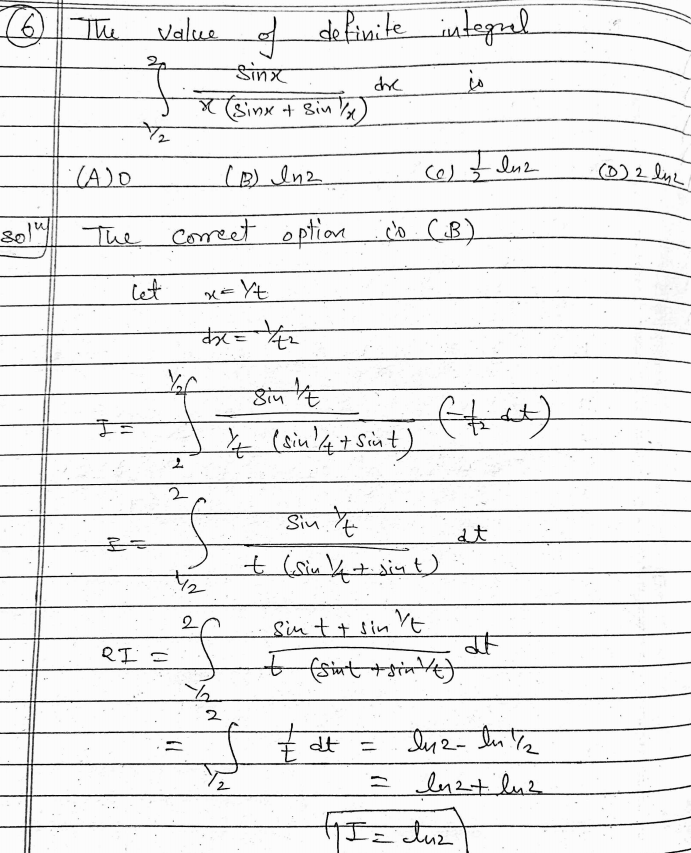 (6) The value of definite integral
∫_{1/2}^{2} sinx / x (sinx + sin 1/x) dx is
(A) 0 (B) ln2 (C) 1/2 ln2 (D) 2 ln2
solⁿ The correct option is (B)
let x = 1/t
dx = -1/t2
I = ∫_{2}^{1/2} sin 1/t / 1/t (sin 1/t + sint) (-1/t2 dt)
I = ∫_{1/2}^{2} sin 1/t / t (sin 1/t + sin t) dt
2I = ∫_{1/2}^{2} sin t + sin 1/t / t (sint + sin 1/t) dt
= ∫_{1/2}^{2} 1/t dt = ln2 - ln 1/2
= ln2 + ln2
I = ln2